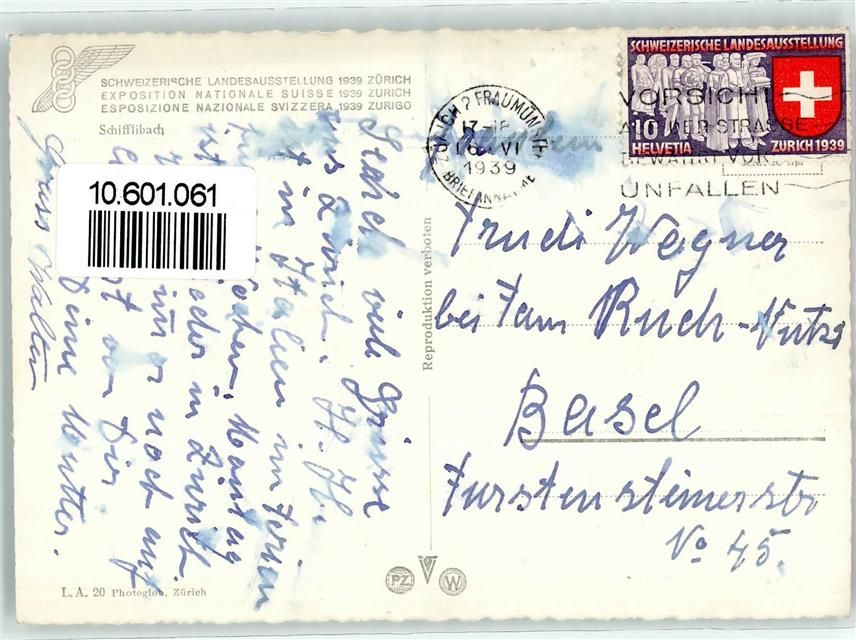 SCHWEIZERISCHE LANDESAUSSTELLUNG 1939 ZÜRICH
EXPOSITION NATIONALE SUISSE 1939 ZURICH
ESPOSIZIONE NAZIONALE SVIZZERA 1939 ZURIGO
Schifflibach
10.601.061
viele Grüsse
aus Zürich. H. Hr.
in Italien in Ferien
Wochen. Montag
wieder in Zürich
noch auf
von Dir
Deine Mutter.
Gruss Walter
L. A. 20 Photoglob, Zürich
Reproduktion verboten
PZ
W
ZÜRICH 2 FRAUMÜNSTER
17-18
16. VI
1939
BRIEFANNAHME
SCHWEIZERISCHE LANDESAUSSTELLUNG
10
HELVETIA
ZURICH 1939
VORSICHT
AUF DER STRASSE
BEWAHRT VOR
UNFÄLLEN
Trudi Wegner
bei Fam Ruch-
Basel
Fürstensteinerstr
No 45.